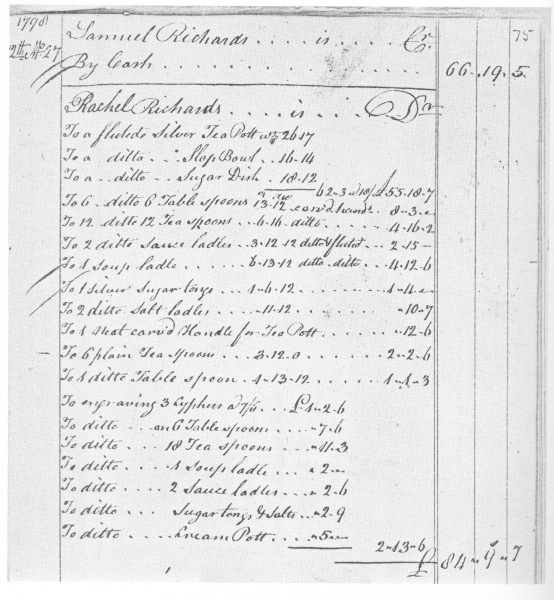 1798 75
12th Mo 27
Samuel Richards .... is .... Cr
By Cash ............ 66..19..5.
Rachel Richards .... is ... Dr
To a fluted Silver Tea Pott wt 26-17
To a ditto .. Slop Bowl .. 16-14
To a .. ditto .. Sugar Dish . 18-12
62-3 a 18/ £55-18-7
To 6 ditto 6 Table spoons 13-12 carv'd hand. 8-3-"
To 12 ditto 12 Tea spoons .. 6-16 ditto .... 4-16-2
To 2 ditto Sauce ladles . 3-12-12 ditto & fluted .. 2-15-
To 1 Soup ladle ...... 6-13-12 ditto . ditto .. 4-12-6
To 1 Silver Sugar tongs ... 1-6-12 ...... 1-4-"
To 2 ditto Salt ladles .... -11-12 ...... "10-7
To 1 Neat carv'd Handle for Tea Pott ..... "12-6
To 6 plain Tea Spoons ... 3-12-0 ...... 2"2-6
To 1 ditto Table spoon . 1-13-12 ...... 1"1-3
To engraving 3 Cyphers a 7/6 ... £1"2-6
To ditto .. on 6 Table spoons .... "7-6
To ditto .... 18 Tea spoons .... "11-3
To ditto .... 1 Soup ladle .... "2"
To ditto .... 2 Sauce ladles ... "2-6
To ditto .... Sugar tongs & Salts .. "2-9
To ditto .... Cream Pott ... "5" 2"13-6
£ 84"9"7